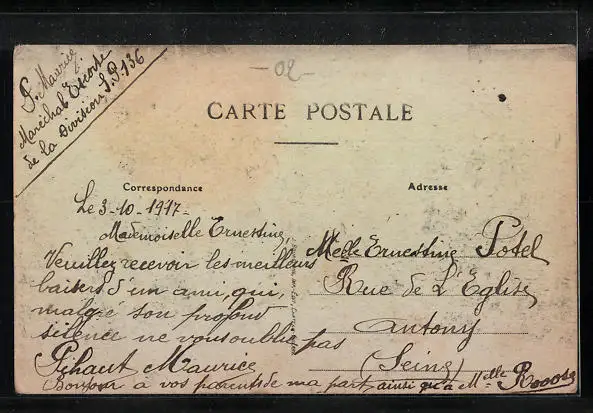 P. Maurice
Maréchal Escorte
de la Division S.P. 136
02
CARTE POSTALE
Correspondance
Adresse
Le 3-10-1917-
Mademoiselle Ernestine,
Veuillez recevoir les meilleurs
baisers d'un ami, qui,
malgré son profond
silence ne vous oublie pas
Pihaut Maurice
Bonjour à vos parents de ma part, ainsi qu'à Melle
Melle Ernestine Potel
Rue de L'Eglise
Antony
(Seine)